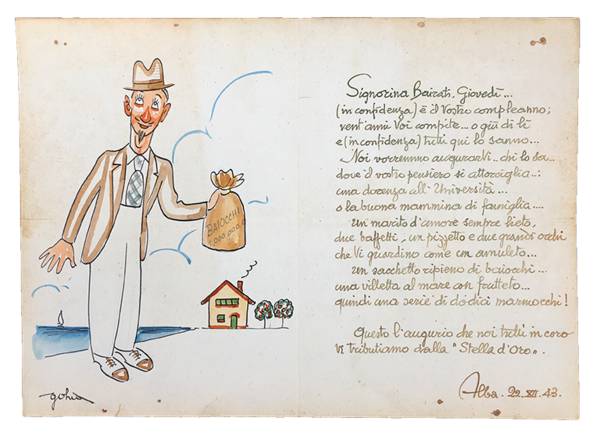 BAIOCCHI
1.000.000.
Signorina Bairati, Giovedì...
(in confidenza) è il Vostro compleanno;
vent'anni Voi compite... o giù di lì
e (in confidenza) tutti qui lo sanno...
Noi vorremmo augurarvi... chi lo sa...
dove il vostro pensiero si attorciglia..:
una docenza all'Università...
o la buona mammina di famiglia....
un marito d'amore sempre lieto,
due baffetti, un pizzetto e due grandi occhi
che Vi guardino come un amuleto...
un sacchetto ripieno di baiocchi...
una villetta al mare con frutteto...
quindi una serie di dodici marmocchi!
Questo l'augurio che noi tutti in coro
Vi tributiamo dalla "Stella d'Oro".
Alba. 22. XII. 43.